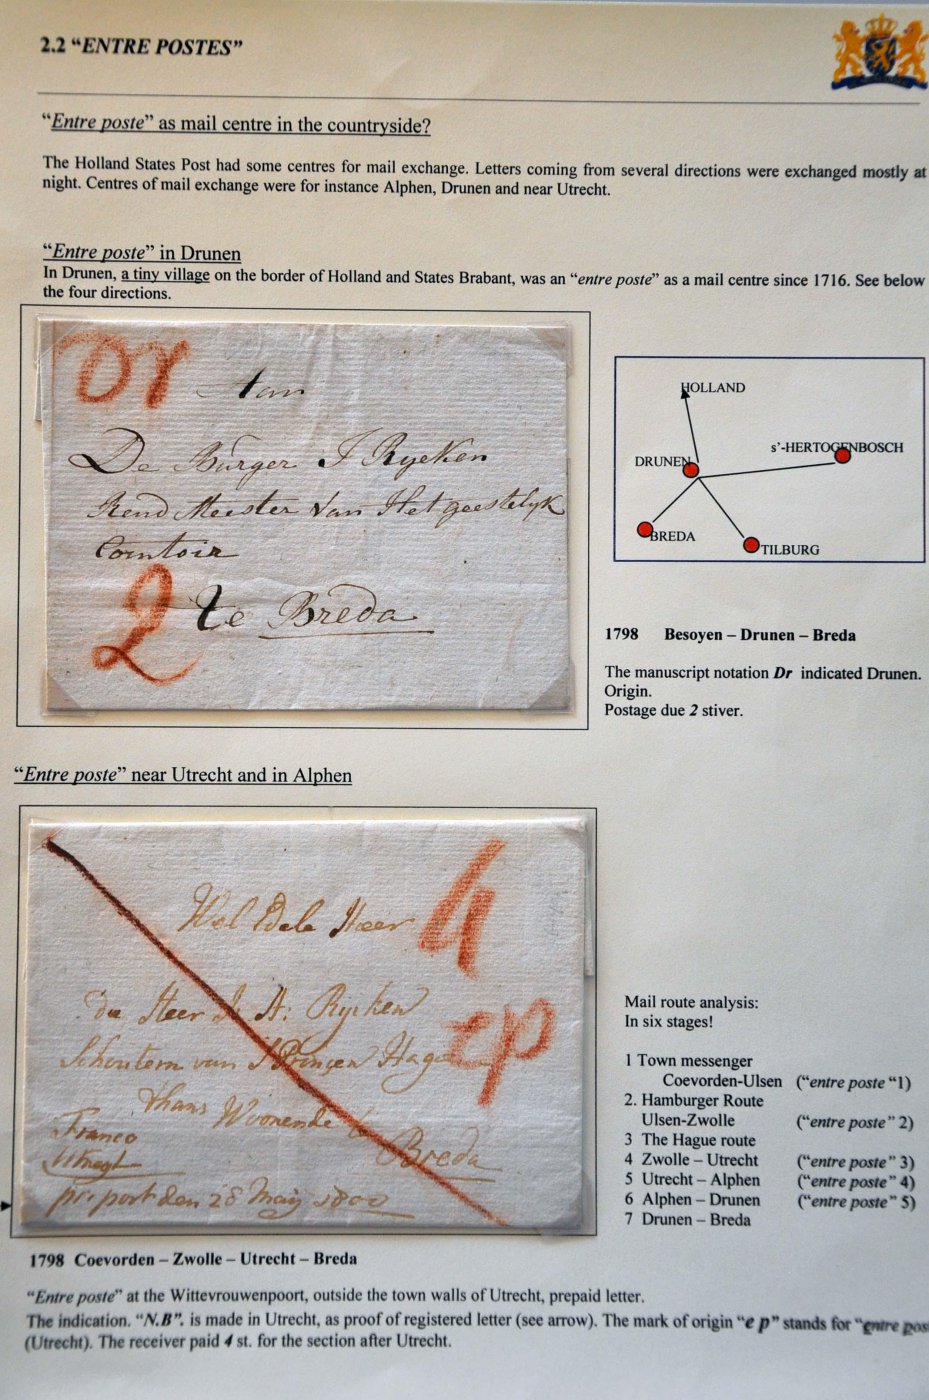 2.2 “ENTRE POSTES”
“Entre poste” as mail centre in the countryside?
The Holland States Post had some centres for mail exchange. Letters coming from several directions were exchanged mostly at
night. Centres of mail exchange were for instance Alphen, Drunen and near Utrecht.
“Entre poste” in Drunen
In Drunen, a tiny village on the border of Holland and States Brabant, was an “entre poste” as a mail centre since 1716. See below
the four directions.
Dr
Aan
De Burger J Ryeken
Rend Meester van Het geestelyk
Comtoir
2 te Breda
HOLLAND
s’-HERTOGENBOSCH
DRUNEN
BREDA
TILBURG
1798 Besoyen – Drunen – Breda
The manuscript notation Dr indicated Drunen.
Origin.
Postage due 2 stiver.
“Entre poste” near Utrecht and in Alphen
4
Wel Edele Heer
ep
de Heer J. H: Rycken
Schoutem van S Princen Hage
thans Woonende te
Franco
Breda
Utregt
pr: post den 28 May 1800
Mail route analysis:
In six stages!
1 Town messenger
Coevorden-Ulsen (“entre poste “1)
2. Hamburger Route
Ulsen-Zwolle (“entre poste” 2)
3 The Hague route
4 Zwolle – Utrecht (“entre poste” 3)
5 Utrecht – Alphen (“entre poste” 4)
6 Alphen – Drunen (“entre poste” 5)
7 Drunen – Breda
1798 Coevorden – Zwolle – Utrecht – Breda
“Entre poste” at the Wittevrouwenpoort, outside the town walls of Utrecht, prepaid letter.
The indication. “N.B”. is made in Utrecht, as proof of registered letter (see arrow). The mark of origin “e p” stands for “entre pos
(Utrecht). The receiver paid 4 st. for the section after Utrecht.